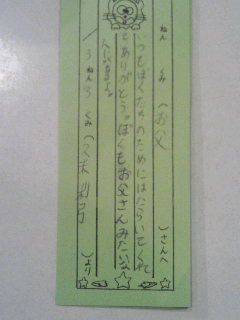 ねん　くみ（お父）さんへ
いつもぼくたちのためにはたらいてくれ
てありがとう。ぼくもお父さんみたいな
人になるよ。
3ねん3くみ（　）より